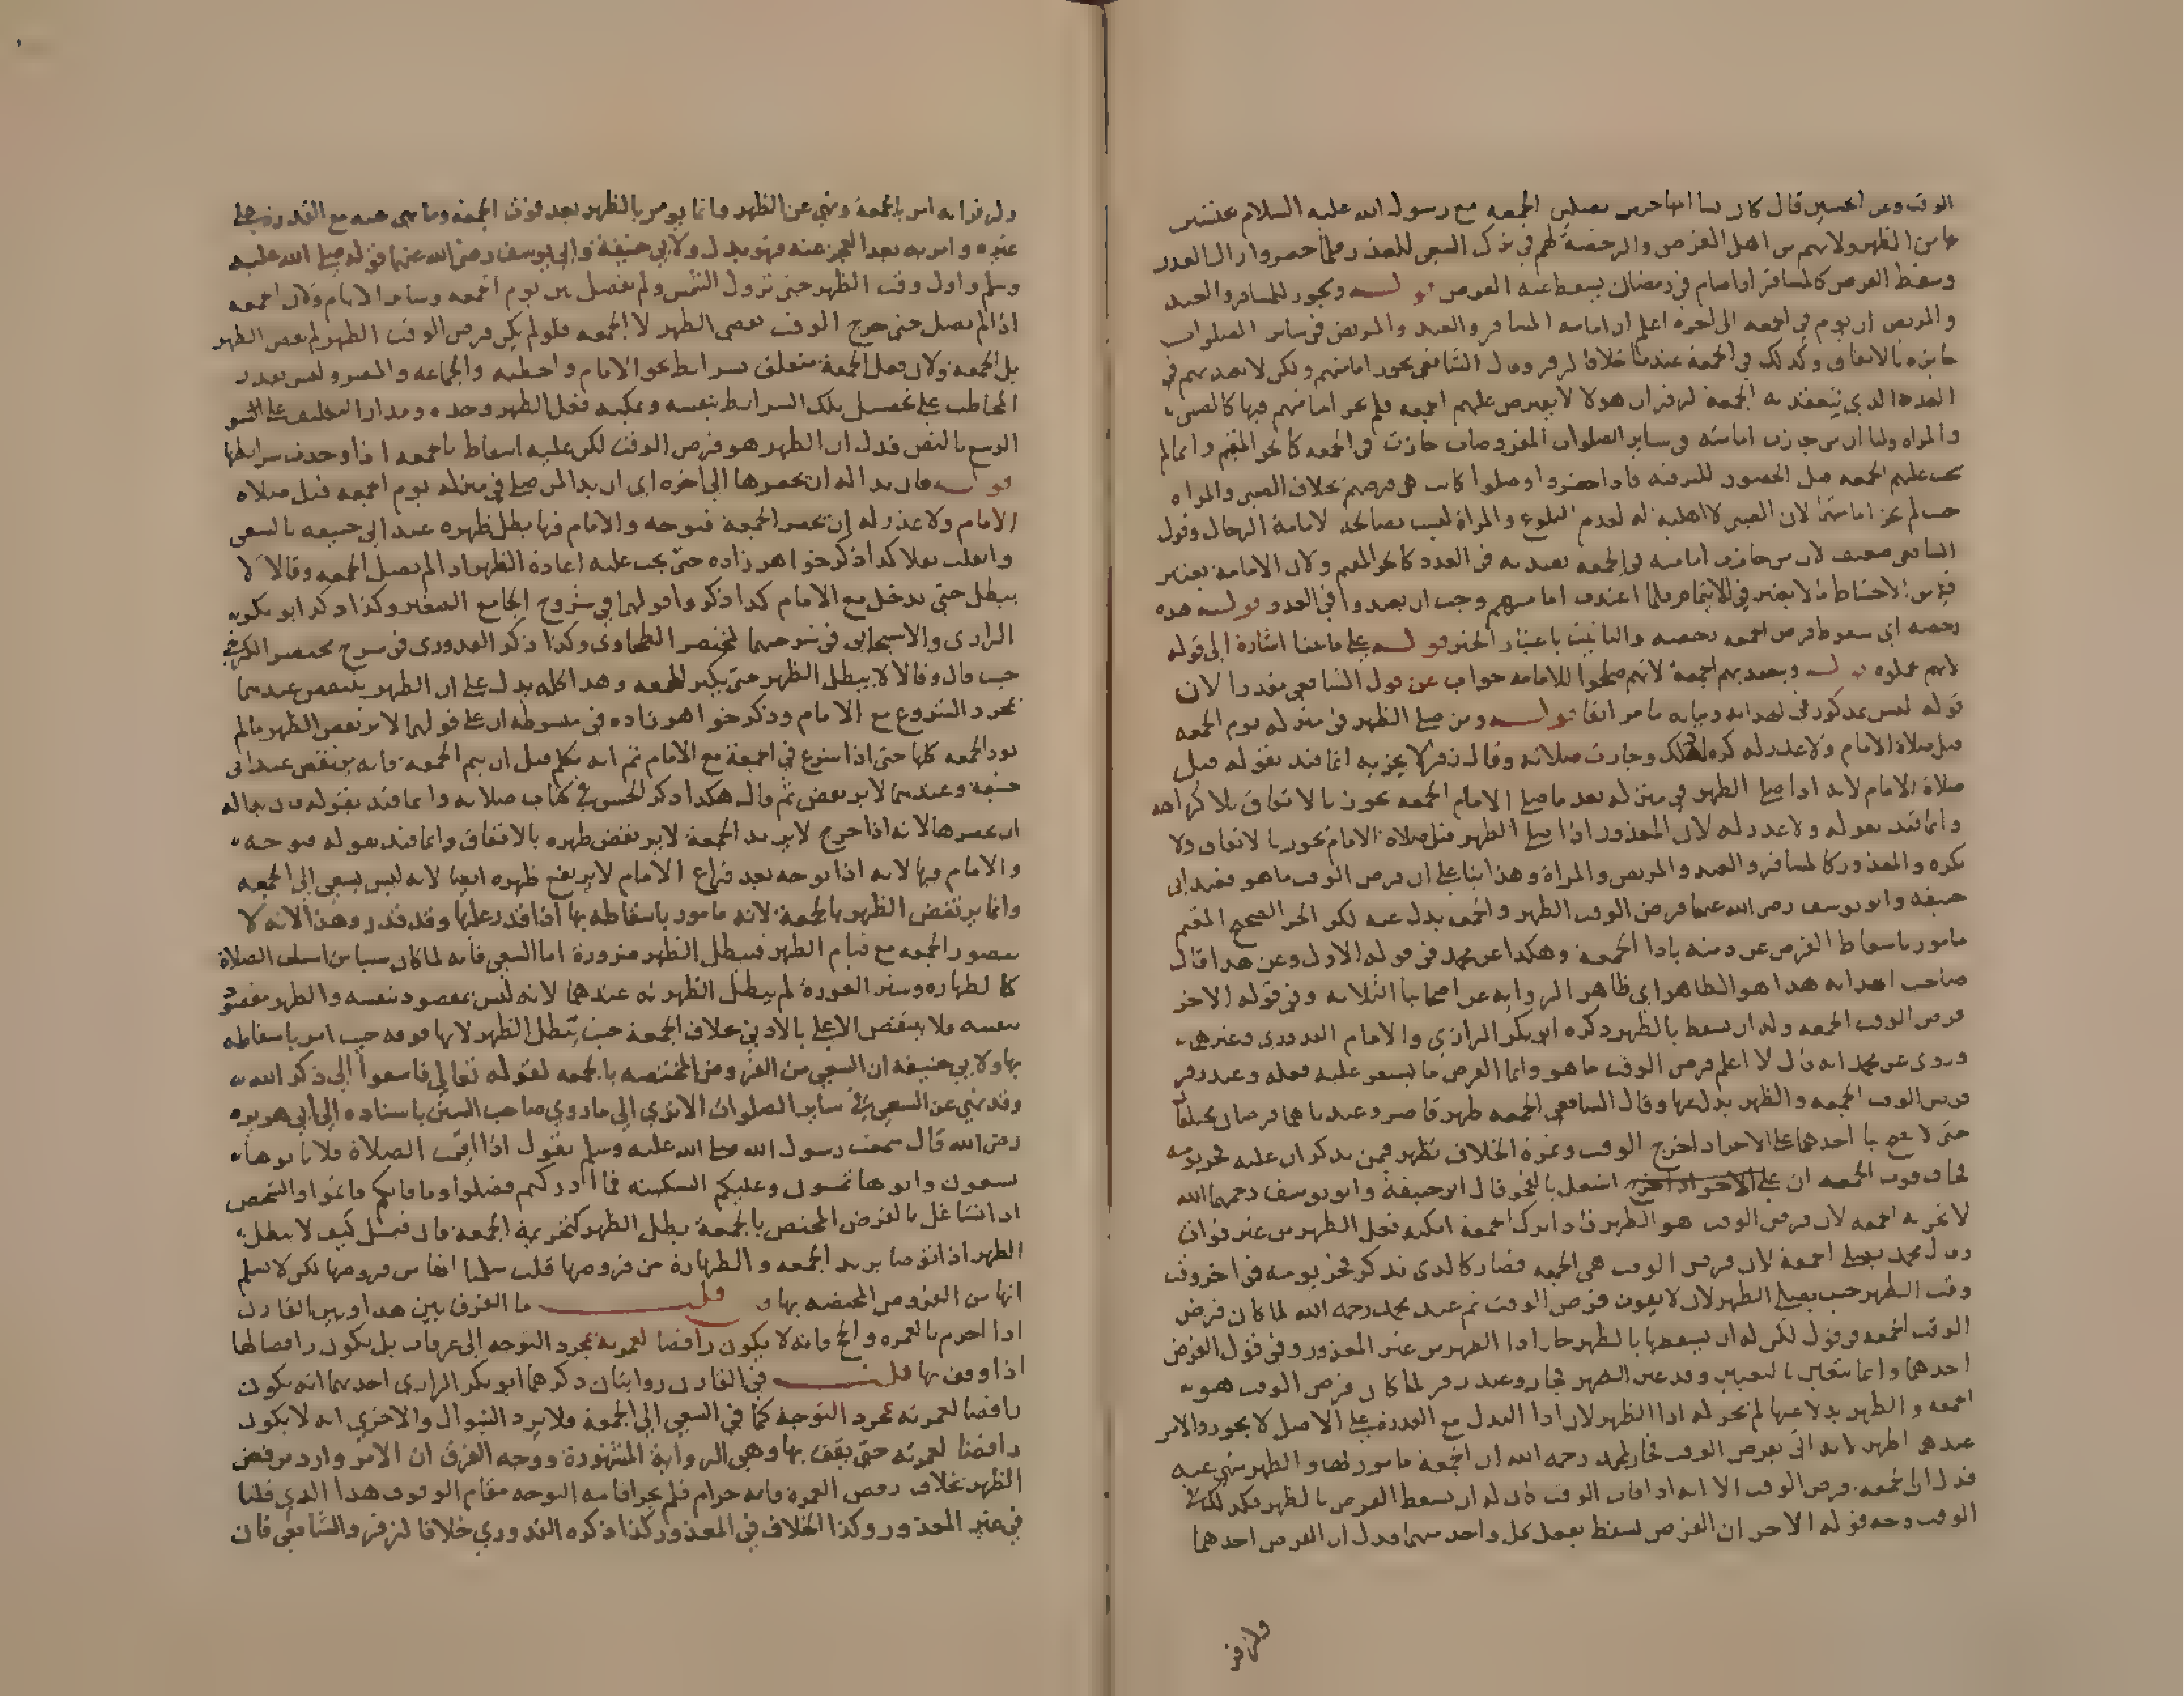 الوقت وعن الحسن قال كان نسا المهاجرين يصلين الجمعه مع رسول الله عليه السلام عن
ها من الظهر ولانهم من اهل الفرض والرخصة لهم في ترك السعي للعذر فلما حصروا زال العذر
وسقط الفرض كالمسافر اذا صام في رمضان يسقط عنه الفرض قوله ويجوز للمسافر والعبد
والمريض ان يوم في الجمعه الى اخره اعلم ان امامه المسافر والعبد والمريض في ساير الصلوات
جايزه بالاتفاق وكذلك في الجمعة عندنا خلافا لزفر وقال الشافعي يجوز امامتهم ولكن لا يعتد بهم في
العدد الذي تنعقد به الجمعة لزفر ان هولا لا يفترض عليهم الجمعه فلم تجز امامتهم فيها كالصبي
والمراه ولنا ان من جازت امامته في ساير الصلوات المفروضات جازت في الجمعه كالحر المقيم وانما لم
تجب عليهم الجمعه قبل الحضور للترفيه فاذا حضروا وصلوا كانت هي فرضهم بخلاف الصبي والمراه
حيث لم تجز امامتهما لان الصبي لا اهلية له لعدم البلوغ والمراة ليست بصالحة لامامة الرجال وقول
الشافعي ضعيف لان من جازت امامته في الجمعه يعتد به في العدد كالحر المقيم ولان الامامه يعتبر
فيها من الاحتياط ما لا يعتبر في الايتمام فلما اعتدت امامتهم وجب ان يعتدوا في العدد قوله هذه
رخصه اي سقوط فرض الجمعه رخصه والتانيث باعتبار الخبر قوله على ما بينا اشارة الى قوله
لانهم تحملوه قوله وينعقد بهم الجمعة لانهم صلحوا للامامه جواب عن قول الشافعي مقدرا لان
قوله ليس بمذكور في الهدايه وبيانه ما مر انفا قوله ومن صلى الظهر في منزله يوم الجمعه
قبل صلاة الامام ولا عذر له كره له ذلك وجازت صلاته وقال زفر لا يجزيه انما قيد بقوله قبل
صلاة الامام لانه اذا صلى الظهر في منزله بعد ما صلى الامام الجمعه يجوز بالاتفاق بلا كراهه
وانما قيد بقوله ولا عذر له لان المعذور اذا صلى الظهر قبل صلاة الامام يجوز بالاتفاق ولا
يكره والمعذور كالمسافر والعبد والمريض والمراة وهذا بنا على ان فرض الوقت ما هو فعند ابي
حنيفه وابو يوسف رضي الله عنهما فرض الوقت الظهر والجمعه بدل عنه لكن الحر الصحيح المقيم
مامور باسقاط الفرض عن ذمته بادا الجمعة وهكذا عن محمد في قوله الاول وعن هذا قال
صاحب الهدايه هذا هو الظاهر اي ظاهر الروايه عن اصحابنا الثلاثه وفي قوله الاخر
فرض الوقت الجمعه وله ان يسقط بالظهر ذكره ابو بكر الرازي والامام القدوري وغيرهم
وروي عن محمد انه قال لا اعلم فرض الوقت ما هو وانما الفرض ما يستقر عليه فعله وعند زفر
فرض الوقت الجمعه والظهر بدل عنها وقال الشافعي الجمعه ظهر قاصر وعندنا هما فرضان مختلفان
حتى لا يصح بنا احدهما على الاخر اذا خرج الوقت وثمرة الخلاف تظهر فيمن يذكر ان عليه فجر يومه
فخاف فوت الجمعه ان على الاخر اذا خرج اشتغل بالفجر قال ابو حنيفة وابو يوسف رحمهما الله
لا تجزيه الجمعه لان فرض الوقت هو الظهر فاذا ترك الجمعة امكنه فعل الظهر من غير فوات
وقال محمد يصلي الجمعة لان فرض الوقت هي الجمعه فصار كالذي تذكر فجر يومه في اخر وقت
وقت الظهر حيث يصلي الظهر لان لا يفوت فرض الوقت ثم عند محمد رحمه الله لما كان فرض
الوقت الجمعه في قول لكن له ان يسقطها بالظهر جاز ادا الظهر من غير المعذور وفي قول الفرض
احدهما وانما يتعين بالتعيين وقد عين الظهر فجاز وعند زفر لما كان فرض الوقت هو
الجمعه والظهر بدلا عنها لم يجز له ادا الظهر لان ادا البدل مع القدرة على الاصل لا يجوز والامر
عندهم اظهر لانه اتى بفرض الوقت فجاز لمحمد رحمه الله ان الجمعة مامور بها والظهر منهي عنه
فدل ان الجمعه فرض الوقت الا انه اذا فات الوقت كان له ان يسقط الفرض بالظهر فكذلك في
الوقت وجه قوله الاخر ان الفرض يسقط بفعل كل واحد منهما فدل ان الفرض احدهما
ولزفر
ولزفر انه امر بالجمعة ونهي عن الظهر وانما يومر بالظهر بعد فوت الجمعة وما نهى عنه مع القدرة على
غيره وامر به بعد العجز عنه فهو بدل ولابي حنيفة وابي يوسف رضي الله عنهما قوله صلى الله عليه
وسلم واول وقت الظهر حتى تزول الشمس ولم يفصل بين يوم الجمعه وساير الايام ولان الجمعه
اذا لم يصل حتى خرج الوقت يقضي الظهر لا الجمعه فلو لم يكن فرض الوقت الظهر لم يقض الظهر
بل الجمعه ولان فعل الجمعة متعلق بشرايط نحو الامام والخطبه والجماعه والمصر وليس بقدر
المخاطب على تحصيل تلك الشرايط بنفسه ويمكنه فعل الظهر وحده ومدار التكليف على
الوسع بالنص فدل ان الظهر هو فرض الوقت لكن عليه اسقاط بالجمعه اذا وجدت شرايطها
قوله فان بدا له ان يحضرها الى اخره اي ان بدا لمن صلى في منزله يوم الجمعه قبل صلاه
الامام ولا عذر له ان يحضر الجمعة فتوجه والامام فيها بطل ظهره عند ابي حنيفه بالسعي
وانقلب نفلا كذا ذكر خواهر زاده حتى يجب عليه اعادة الظهر اذا لم يصل الجمعه وقالا لا
يبطل حتى يدخل مع الامام كذا ذكروا قولهما في شروح الجامع الصغير وكذا ذكر ابو بكر
الرازي والاسبيجابي في شرحهما لمختصر الطحاوي وكذا ذكر القدوري في شرح مختصر الكرخي
حيث قال وقالا لا يبطل الظهر حتى يكبر للجمعه وهذا كله يدل على ان الظهر ينتقض عندهما
بمجرد الشروع مع الامام وذكر خواهر زاده في مبسوطه ان على قولهما لا يرتفض الظهر ما لم
يود الجمعه كلها حتى اذا شرع في الجمعة مع الامام ثم انه تكلم قبل ان يتم الجمعه فانه يرتفض عند ابي
حنيفه وعندهما لا يرتفض ثم قال هكذا ذكر الحسن في كتاب صلاته وانما قيد بقوله فان بدا له
ان يحضرها لانه اذا خرج لا يريد الجمعة لا يرتفض ظهره بالاتفاق وانما قيد بقوله فتوجه
والامام فيها لانه اذا توجه بعد فراغ الامام لا يرتفض ظهره ايضا لانه ليس يسعى الى الجمعه
وانما يرتفض الظهر بالجمعة لانه مامور باسقاطه بها اذا قدر عليها وقد قدر وهذا لانه لا
يتصور الجمعه مع قيام الظهر فيبطل الظهر ضرورة اما السعي فانه لما كان سببا من اسباب الصلاة
كالطهاره وستر العورة لم يبطل الظهر به عندهما لانه ليس بمقصود بنفسه والظهر مقصود
بنفسه فلا ينتقض الاعلى بالادنى بخلاف الجمعة حيث يبطل الظهر لانها فوقه حيث امر باسقاطه
بها ولابي حنيفه ان السعي من الفروض المختصه بالجمعه لقوله تعالى فاسعوا الى ذكر الله
وقد نهي عن السعي في ساير الصلوات الا ترى الى ما روي صاحب السنن باسناده الى ابي هريره
رضي الله قال سمعت رسول الله صلى الله عليه وسلم يقول اذا اقيمت الصلاة فلا تاتوها
تسعون واتوها تمشون وعليكم السكينه فما ادركتم فصلوا وما فاتكم فاتموا والشخص
اذا تشاغل بالفرض المختص بالجمعة يبطل الظهر كتحريمة الجمعة فان قيل كيف لا يبطل
الظهر اذا توضا يريد الجمعه والطهارة من فروضها قلت سلمنا انها من فروضها لكن لا نسلم
انها من الفروض المختصه بها فان قلت ما الفرق بين هذا وبين القارن
اذا احرم بالعمره والحج فانه لا يكون رافضا لعمرته بمجرد التوجه الى عرفات بل يكون رافضا لها
اذا وقف بها قلت في القارن روايتان ذكرهما ابو بكر الرازي احديهما انه يكون
رافضا لعمرته بمجرد التوجه كما في السعي الى الجمعة فلا يرد السوال والاخرى انه لا يكون
رافضا لعمرته حتى يقف بها وهي الرواية المشهورة ووجه الفرق ان الامر وارد برفض
الظهر بخلاف رفض العمره فانه حرام فلم يجز اقامه التوجه مقام الوقوف هذا الذي قلنا
في غير المعذور وكذا الخلاف في المعذور كذا ذكره القدوري خلافا لزفر والشافعي فان